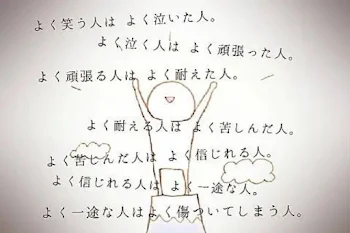 よく笑う人は よく泣いた人。
よく泣く人は よく頑張った人。
よく頑張る人は よく耐えた人。
よく耐える人は よく苦しんだ人。
よく苦しんだ人は よく信じれる人。
よく信じれる人は よく一途な人。
よく一途な人はよく傷ついてしまう人。